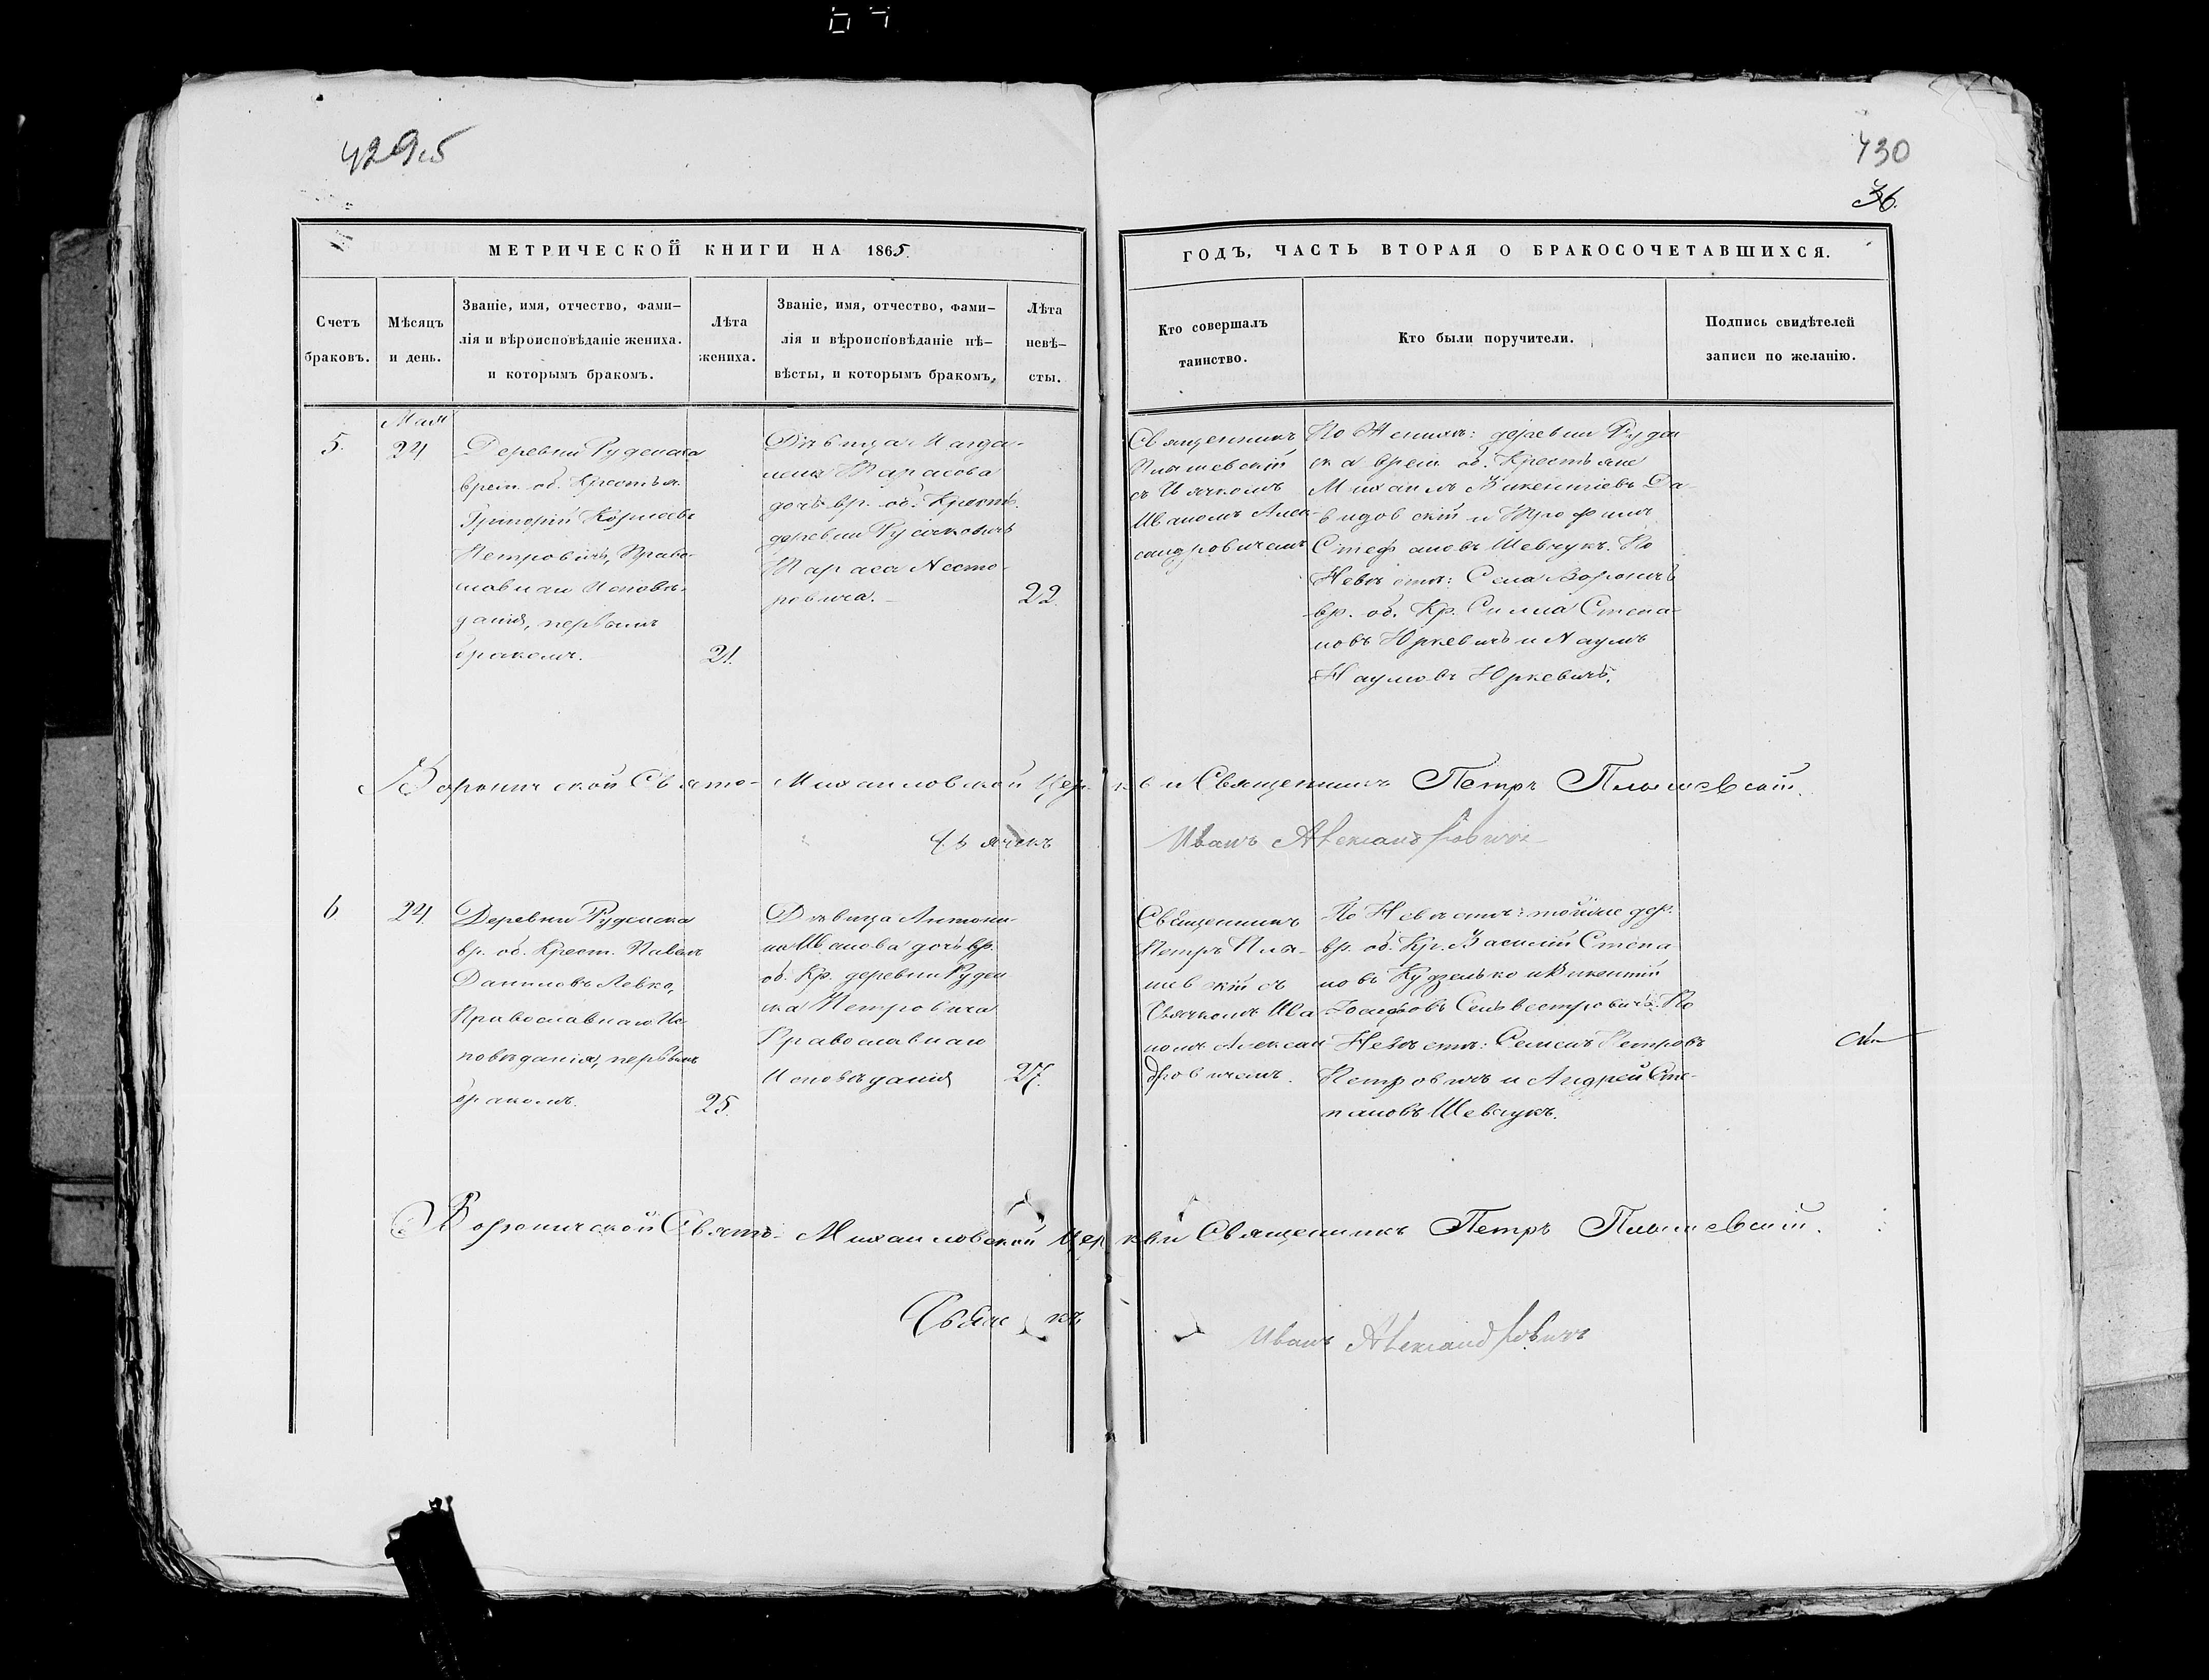 429об
430
36.
МЕТРИЧЕСКОЙ КНИГИ НА 1865.
ГОДЪ, ЧАСТЬ ВТОРАЯ О БРАКОСОЧЕТАВШИХСЯ.
Счетъ
браковъ.
Мѣсяцъ
и день.
Званіе, имя, отчество, фами-
лія и вѣроисповѣданіе жениха.
и которымъ бракомъ.
Лѣта
жениха.
Званіе, имя, отчество, фами-
лія и вѣроисповѣданіе нѣ-
вѣсты, и которымъ бракомъ,
Лѣта
невѣ-
сты.
Кто совершалъ
таинство.
Кто были поручители.
Подпись свидѣтелей
записи по желанію.
5.
Мая
24
Деревни Руденска
врем. об. Крестья.
Григорій
Петровичъ, Право-
славнаго Исповѣ-
данія, первымъ
бракомъ.
21.
Дѣвица Магда-
лена Тарасова
дочь вр. об. Крест.
деревни
Тараса Несто-
ровича.
22.
Священникъ
Пляшевскій
съ Дьячкомъ
Иваномъ Алек-
сандровичемъ
По Женихѣ: деревни Руден
ска врем. об. Крестьяне
Михаилъ Викентіевъ Да-
видовскій и Трофимъ
Стефановъ Шевчукъ. По
Невѣстѣ: Села Вороничъ
вр. об. Кр. Силла Степа-
новъ Юркевичъ и Наумъ
Наумовъ Юркевичъ.
Вороничской Свято-Михаиловской Церкви Священникъ Петръ Пляшевскій.
Дьячекъ Иванъ Александровичъ
6
24.
Деревни Руденска
вр. об. Крест. Павелъ
Даниловъ Левко,
Православнаго Ис-
повѣданія, первымъ
бракомъ.
25.
Дѣвица Антони-
на Иванова дочь вр.
об. Кр. деревни Руден
ска Петровича
Православнаго
Исповѣданія
27.
Священникъ
Петръ Пля-
шевскій съ
Дьячкомъ Ива
номъ Алексан
дровичемъ.
По Невѣстѣ: тойже дер.
вр. об. Кр. Василій Степа
новъ Кудзелько и Викентій
Іосифовъ Сельвестровичъ. По
Невѣстѣ: Семенъ Петровъ
Петровичъ и Андрей Сте-
пановъ Шевчукъ.
Вороничской Свято-Михаиловской Церкви Священникъ Петръ Пляшевскій.
Дьячекъ Иванъ Александровичъ